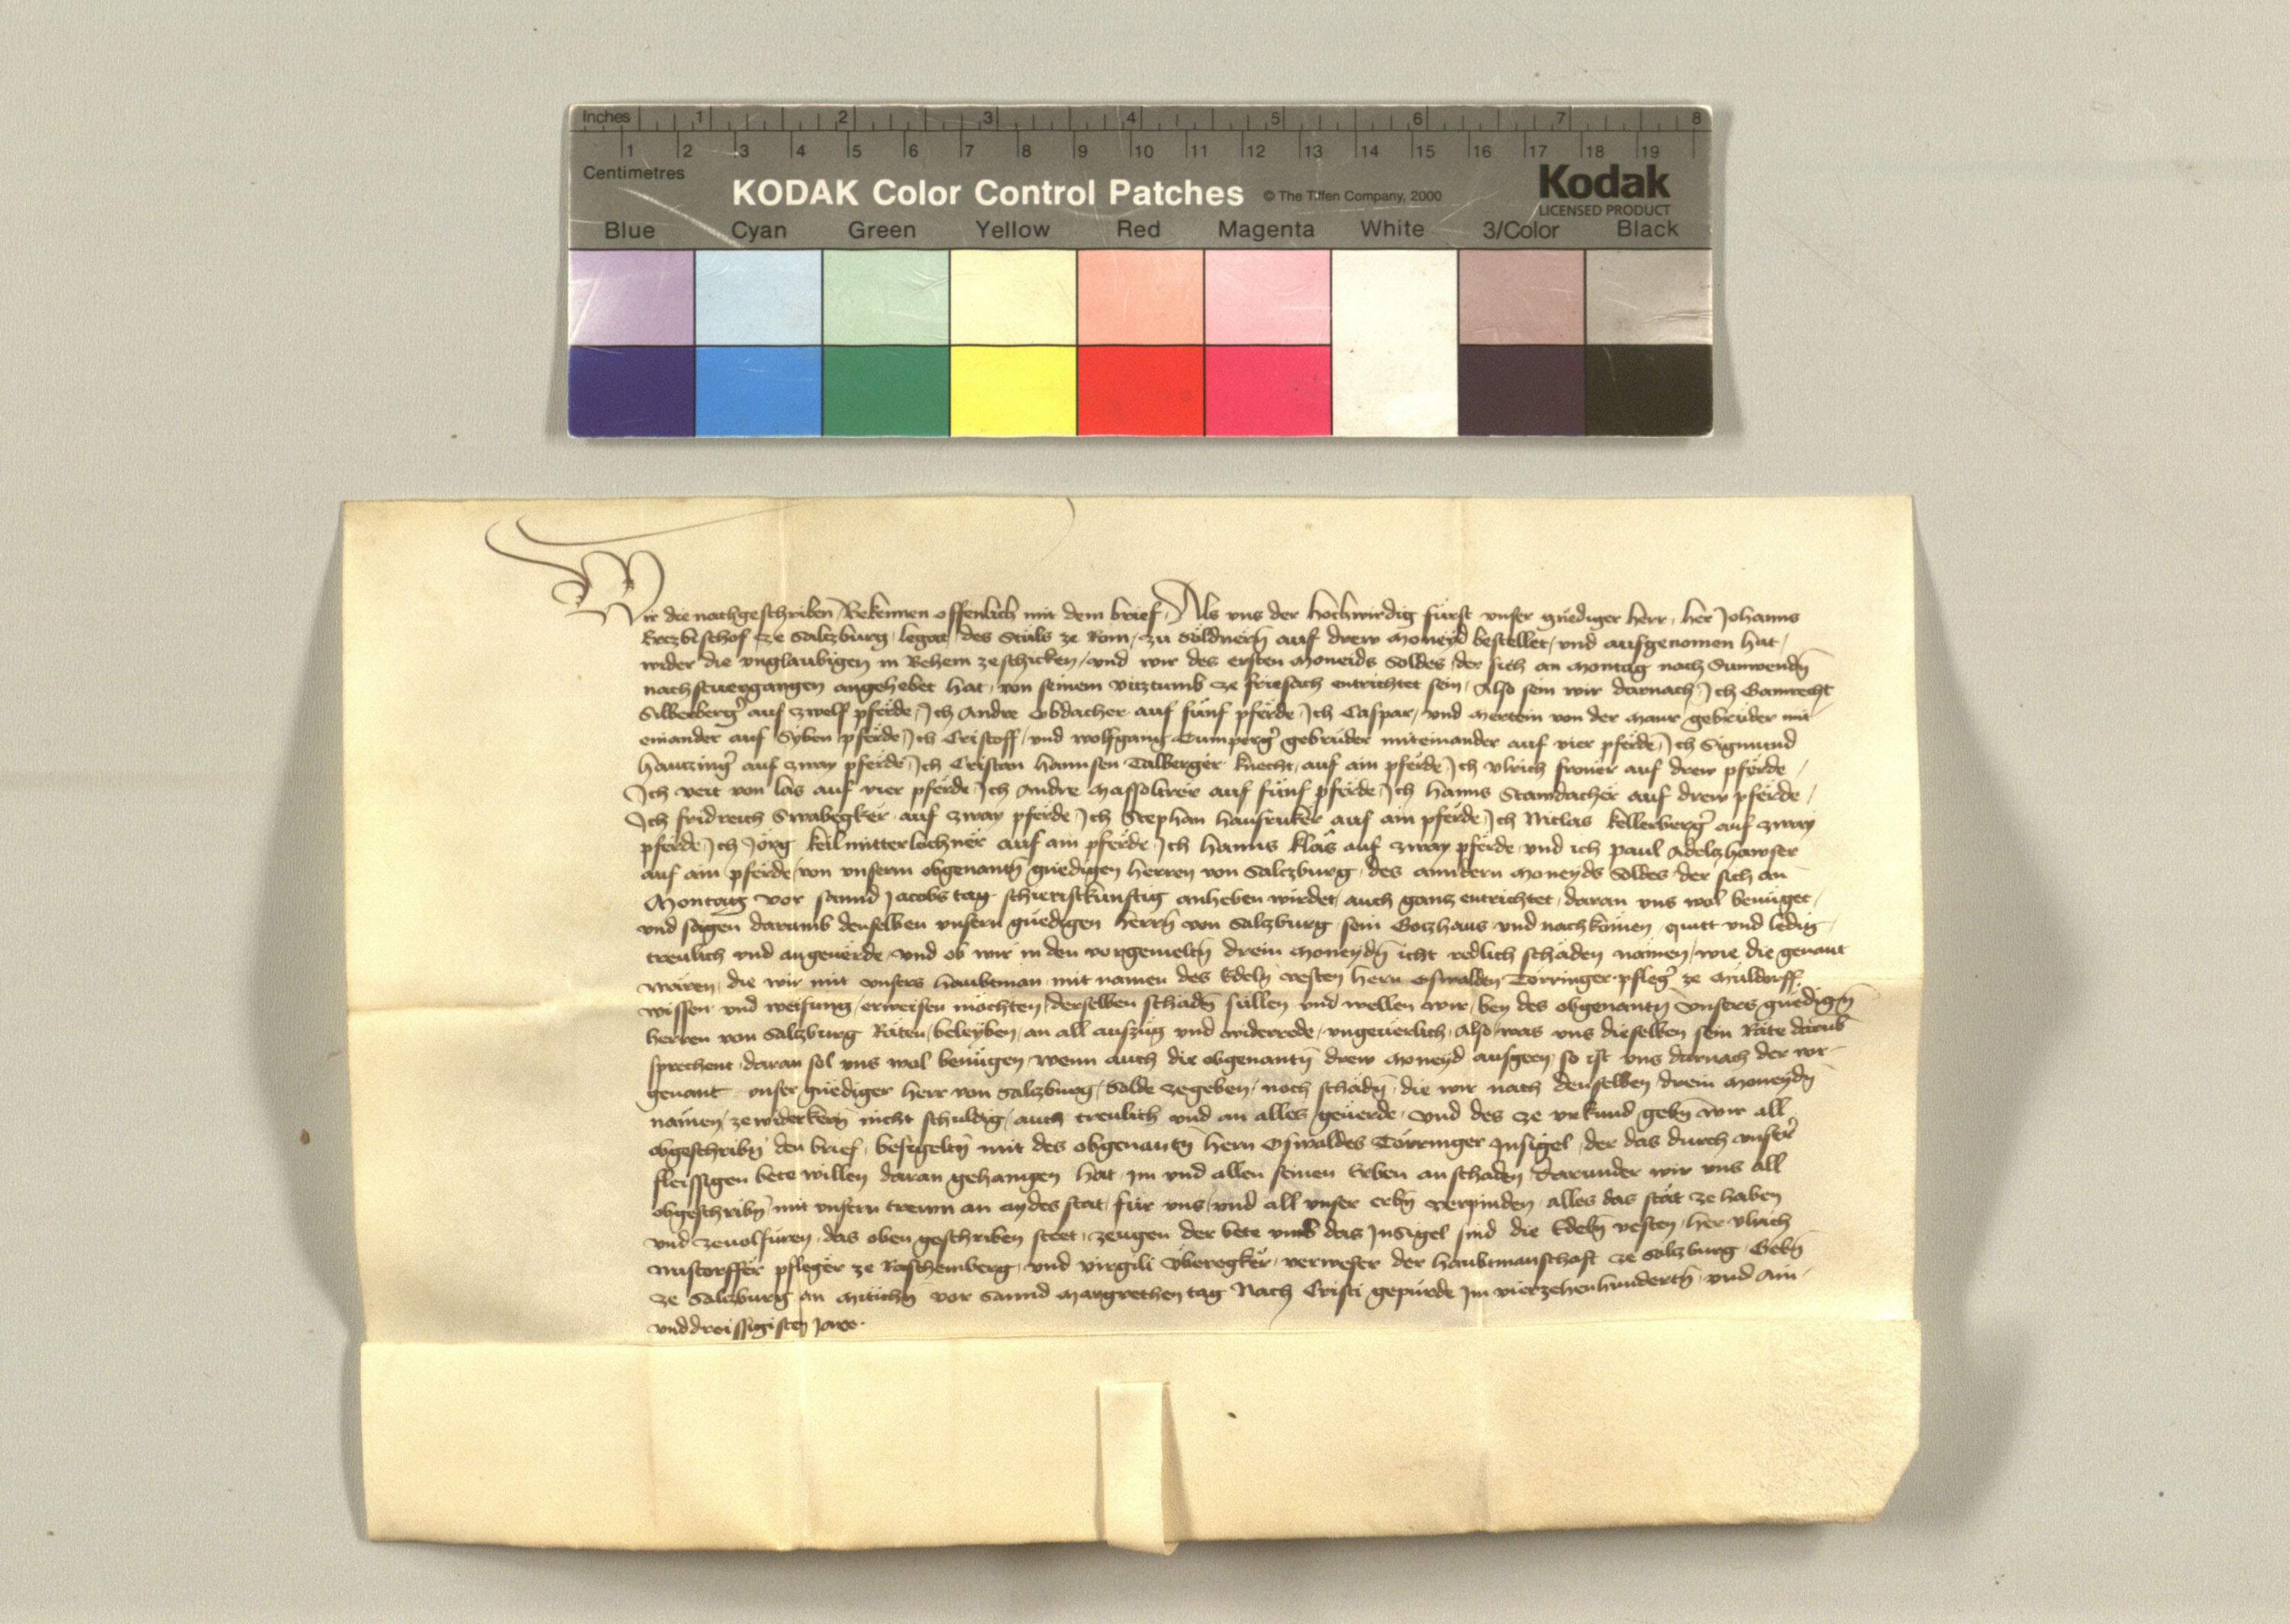 Inches 1 2 3 4 5 6 7 8
1 2 3 4 5 6 7 8 9 10 11 12 13 14 15 16 17 18 19
Centimetres
KODAK Color Control Patches © The Tiffen Company, 2000 Kodak
LICENSED PRODUCT
Blue Cyan Green Yellow Red Magenta White 3/Color Black
Wir die nachgeschriben Bekennen offenlich mit dem brief, Als vns der hochwirdig fürst vnser gnediger herr, her Johanns
Ertzbischof ze Saltzburg legat des Stuls ze Rom, zu Söldnern auf drew moneyd bestellet, vnd aufgenomen hat,
wider die vnglaubigen in Behem zeschicken, vnd wir des ersten moneids Soldes, der sich an montag nach Sunwenden
nachstuergangen angehebet hat, von seinem vitztumb ze friesach entrichtet sein, Also sein wir darnach, Ich Gamrecht
Silberberger auf zwelf pferde, Ich Andre Obdacher auf fünf pferde, Ich Caspar, vnd Mertein von der Maur gebrüder mit
einander auf Syben pferde, Ich Cristoff, vnd wolfgang Tumperger gebrüder miteinander auf vier pferde, Ich Sigmund
hauzinger auf zway pferde, Ich Cristan hannsen Talberger knecht, auf ain pferde, Ich vlrich froner auf drew pferde,
Ich veit von las auf vier pferde, Ich Andre Massoltrer auf fünf pferde, Ich hanns Stawdacher auf drew pferde,
Ich fridreich Swabegker auf zway pferde, Ich Stephan hausruker auf ain pferde, Ich Niclas kellerberger auf zway
pferde, Ich Jörg keilmitterlochner auf ain pferde, Ich hanns klas auf zway pferde vnd ich paul Adelzhawser
auf ain pferde, von vnserm obgenanten gnedigen herren von Saltzburg, des anndern moneyds Soldes, der sich an
Montag vor sannd Jacobs tag schieristkünftig anheben wirdet, auch ganz entrichtet, daran vns wol benüget,
vnd sagen darumb denselben vnsern gnedigen herrn von Salzburg sein Gotzhaus vnd nachkomen, quitt vnd ledig,
treulich vnd angeuerde, vnd ob wir in den vorgemelten drein moneyden icht redlich schäden nämen, wie die genant
wären, die wir mit vnsers haubtman mit namen des Edeln vesten hern Oswalden Törringer pfleger ze Müldorff,
wissen vnd weisung, erweisen möchten, derselben schäden süllen vnd wellen wir, bey des obgenanten vnsers gnedigen
herren von Salzburg Räten, beleyben, an all auszüg vnd widerrede, vngeuerlich, Also, was vns dieselben sein Räte darub
sprechent, daran sol vns wol benügen, wenn auch die obgenanten drew moneyd ausgeen, so ist vns darnach der vor
genant vnser gnediger herr von Salzburg, Solde zegeben, noch schäden, die wir nach denselben drein moneyden
nämen, zewiderkern nicht schuldig, auch treulich vnd an alles geuerde, vnd des ze vrkund geben wir all
obgeschriben den brief, besigelten mit des obgenanten hern Oswaldes Törringer Insigel, der das durch vnser
fleissigen bete willen daran gehangen hat, im vnd allen seinen Erben anschaden, darunder wir vns all
obgeschriben mit vnsern trewn an aydes stat, für vns, vnd all vnser erben verpinden, alles das stät ze haben
vnd zeuolfüren, das oben geschriben steet, zeugen der bete vmb das Insigel sind die Edeln vesten, her vlrich
nustorffer pfleger ze Raschemberg, vnd virgili überegker, verweser der haubtmanschaft ze Salzburg, Geben
ze Salzburg an Mitichen vor Sannd Margrethen tag Nach Cristi gepürde Im vierzehenhunderten vnd Ain
vnddreissigisten Jare.